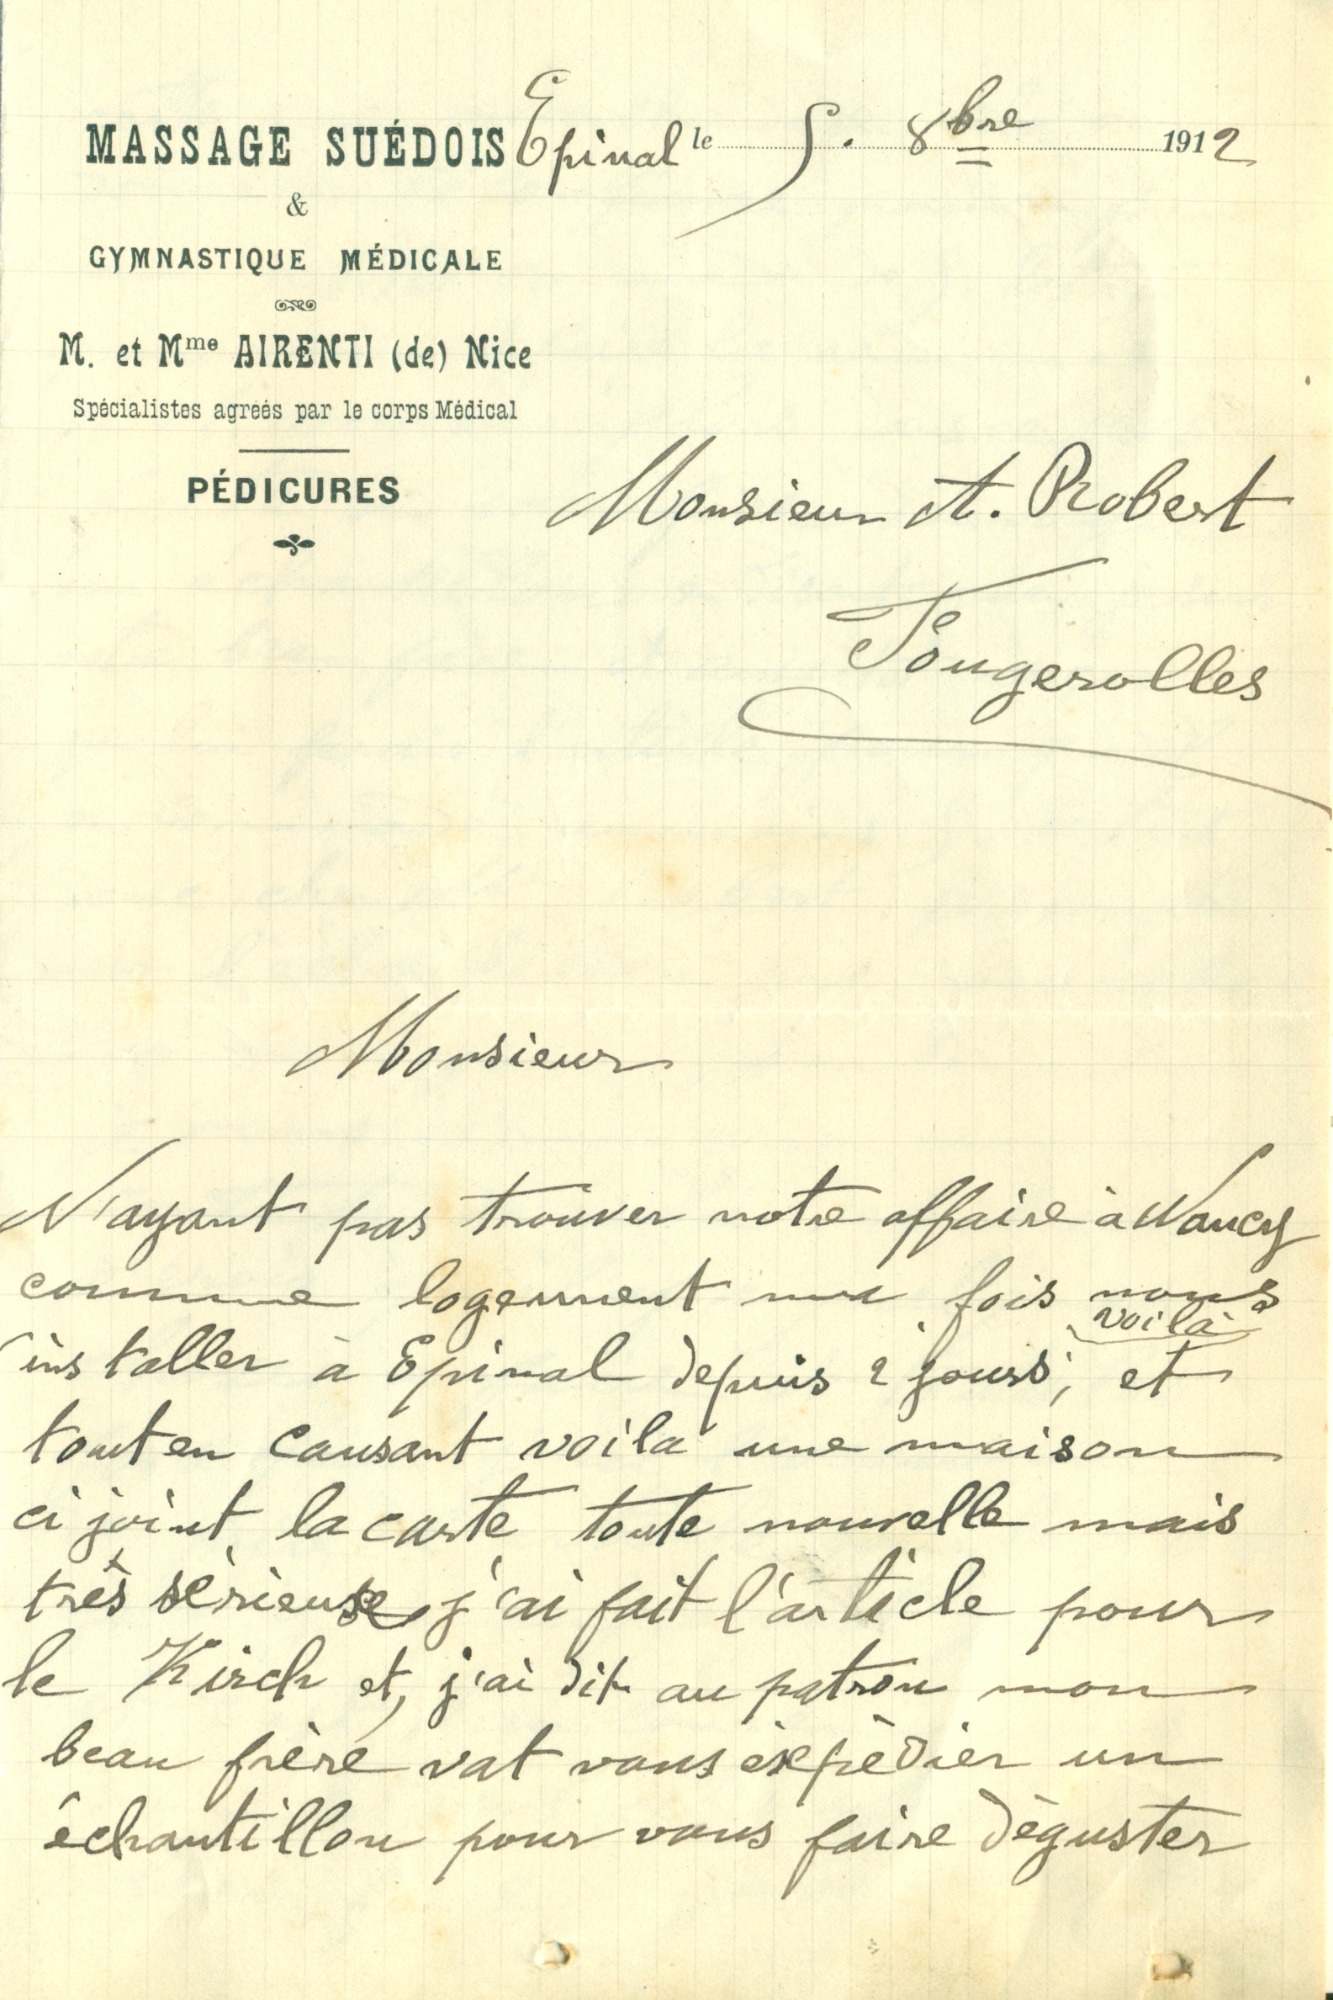 MASSAGE SUÉDOIS
&
GYMNASTIQUE MÉDICALE
M. et Mme AIRENTI (de) Nice
Spécialistes agréés par le corps Médical
PÉDICURES
Epinal le 5. 8bre 1912
Monsieur A. Robert
Fougerolles
Monsieur
N'ayant pas trouver notre affaire à Nancy
comme logement ma fois nous
voilà
installer à Epinal depuis 2 jours, et
tout en causant voila une maison
ci joint la carte toute nouvelle mais
très sérieuse j'ai fait l'article pour
le Kirch et, j'ai dit au patron mon
beau frère vat vous éxpédier un
échantillon pour vous faire déguster